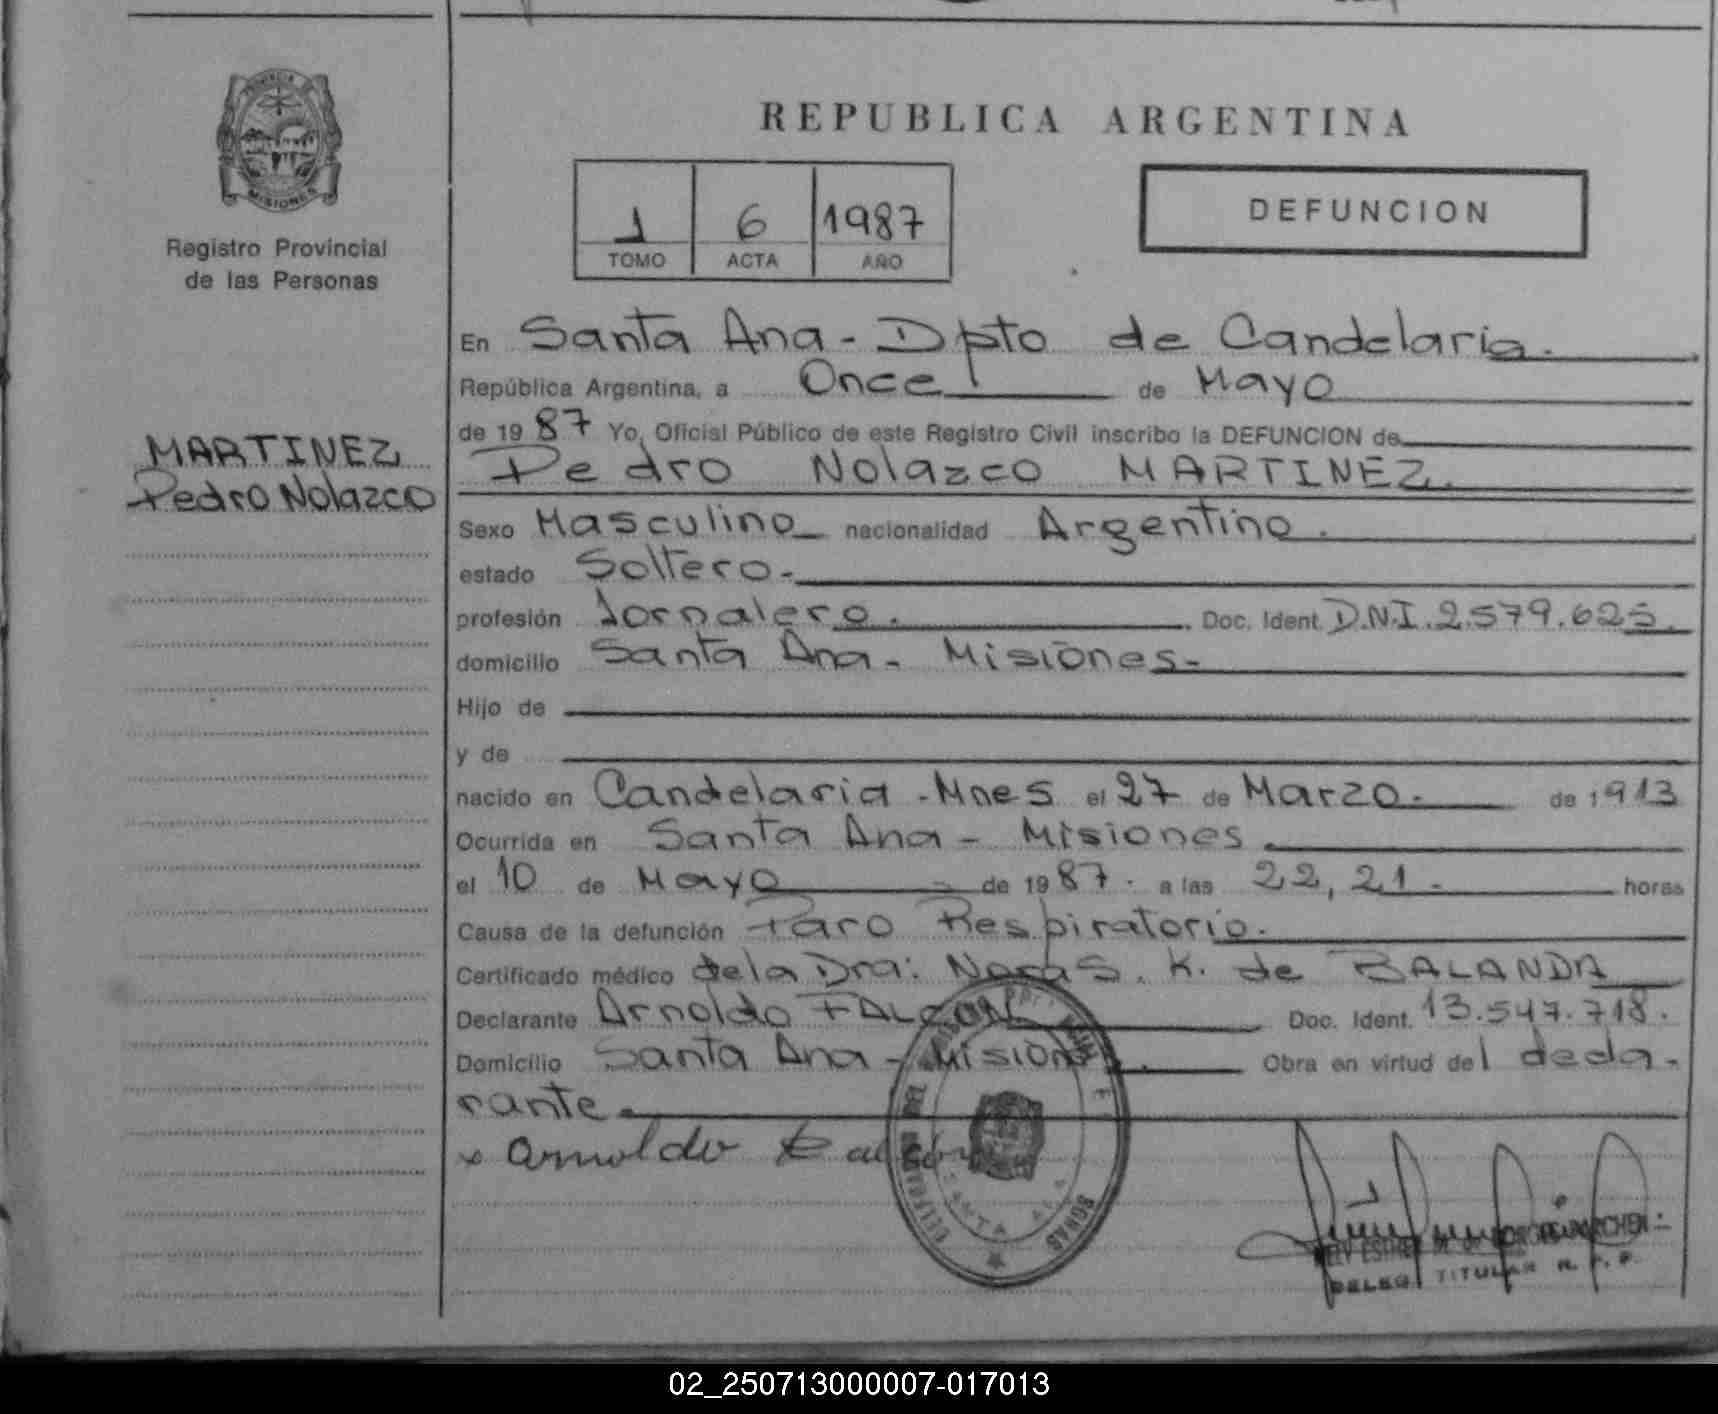 PROVINCIA
MISIONES
Registro Provincial
de las Personas
MARTINEZ
Pedro Nolazco
REPUBLICA ARGENTINA
1 6 1987
TOMO ACTA AÑO
DEFUNCION
En Santa Ana - Dpto de Candelaria.
República Argentina, a Once de Mayo
de 1987 Yo, Oficial Público de este Registro Civil inscribo la DEFUNCION de
Pedro Nolazco MARTINEZ.
Sexo Masculino nacionalidad Argentino.
estado Soltero.-
profesión Jornalero. Doc. Ident. D.N.I. 2.579.625.
domicilio Santa Ana - Misiones-
Hijo de
y de
nacido en Candelaria - Mnes el 27 de Marzo.- de 1913
Ocurrida en Santa Ana - Misiones.
el 10 de Mayo de 1987. a las 22,21.- horas
Causa de la defunción Paro Respiratorio.
Certificado médico de la Dra: Nora S. K. de BALANDA
Declarante Arnoldo FALCON Doc. Ident. 13.547.718.
Domicilio Santa Ana - Misiones. Obra en virtud del decla-
rante.
x Arnoldo Falcón
SANTA ANA
DELEG. TITULAR R. P. P.
02_250713000007-017013